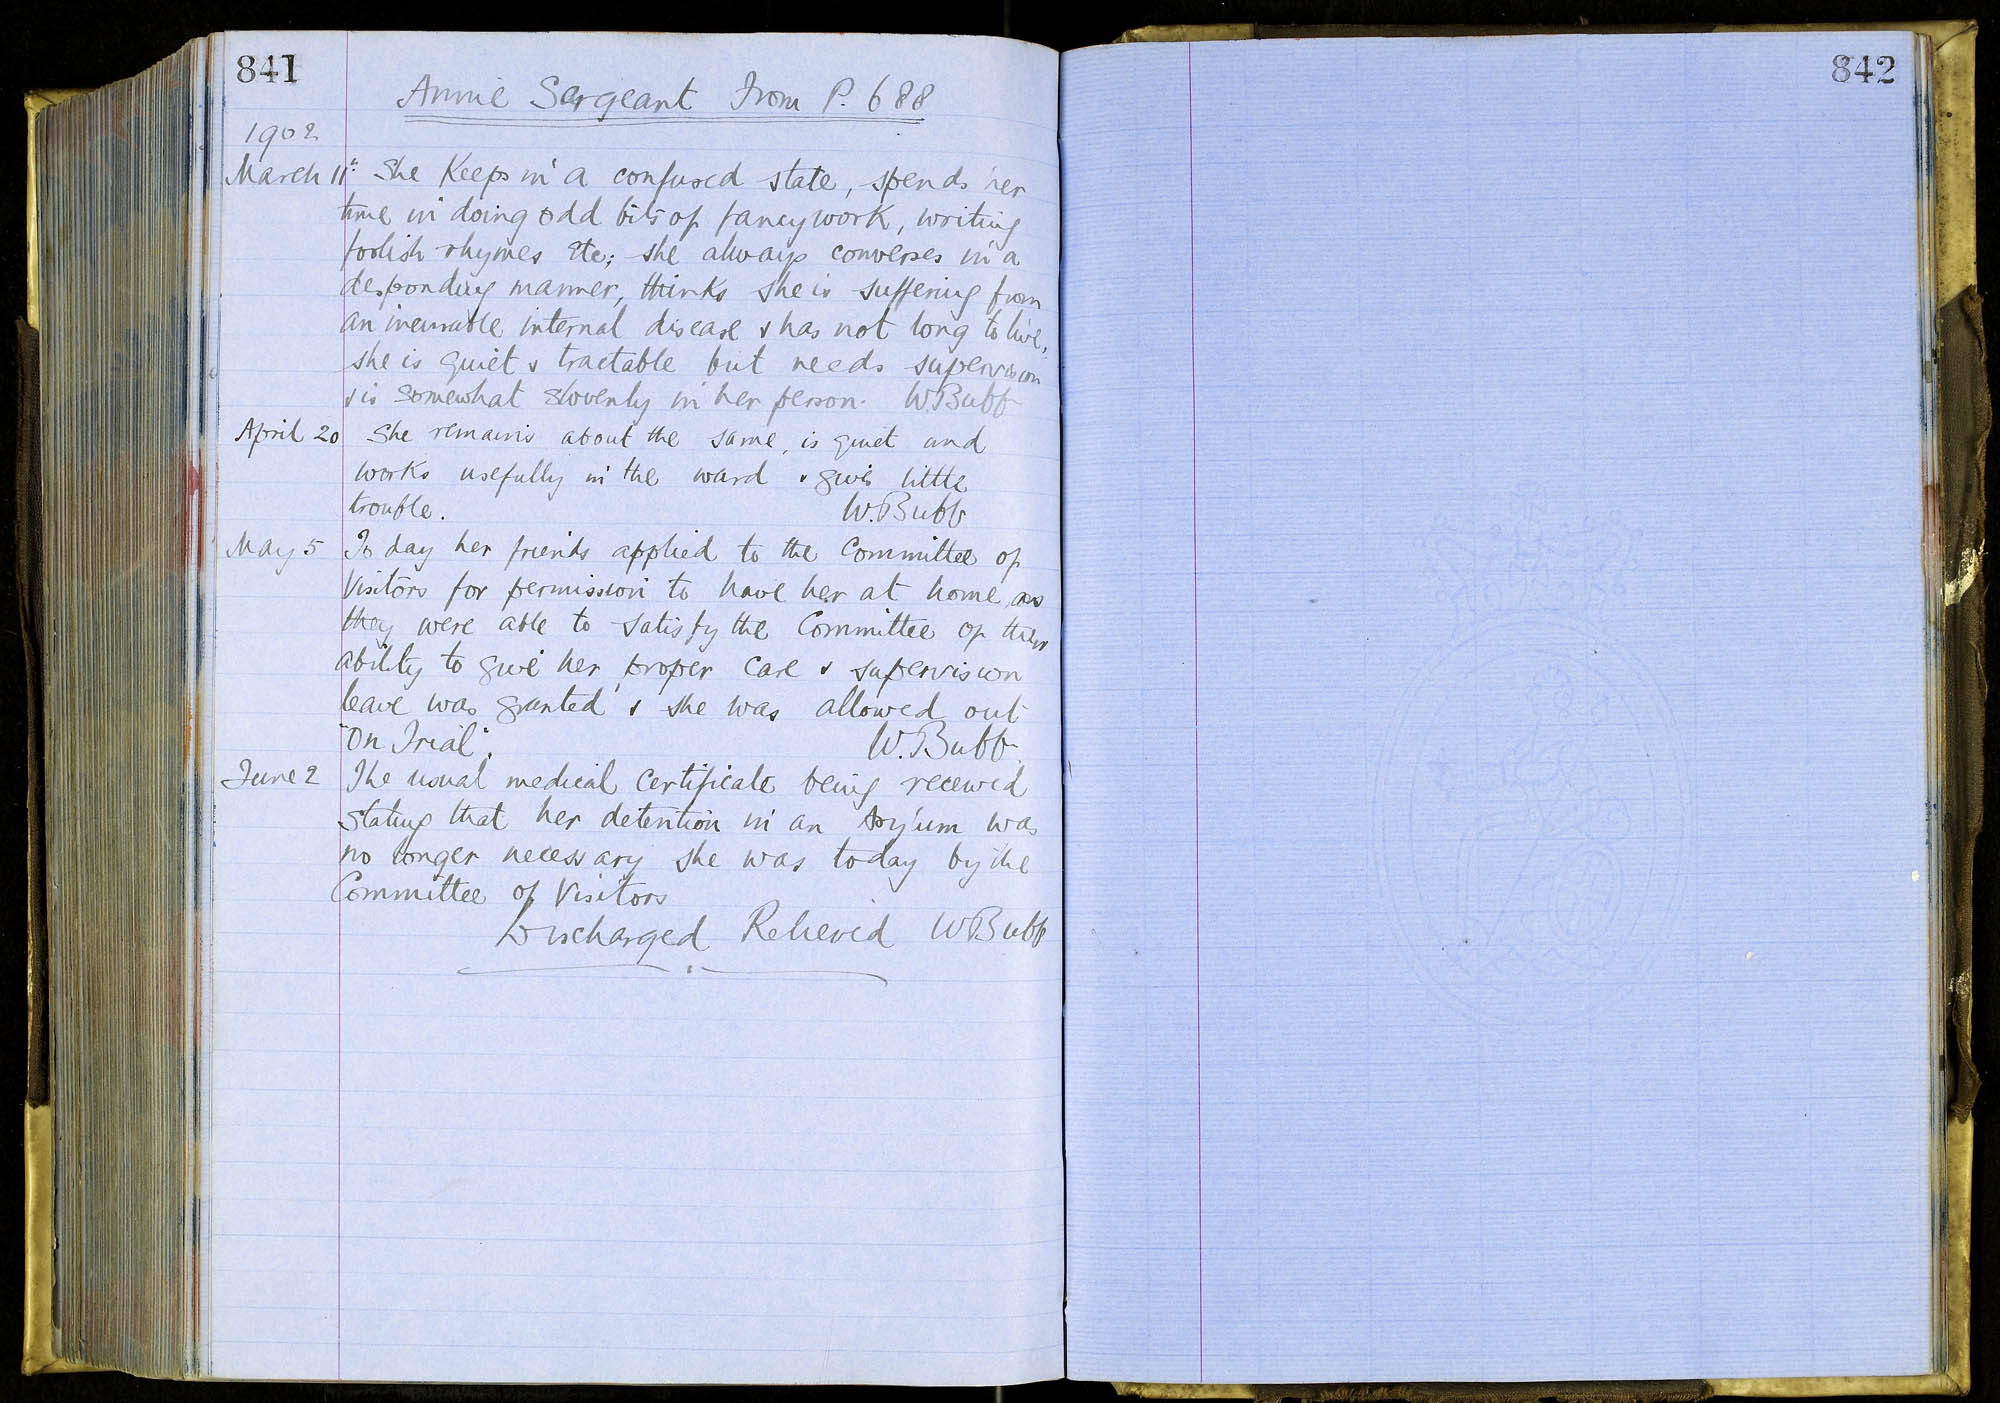 841
Annie Sergeant From P. 688
1902
March 11th She Keeps in a confused state, spends her
time in doing odd bits of fancywork, writing
foolish rhymes etc; she always converses in a
desponding manner, thinks she is suffering from
an incurable internal disease & has not long to live,
she is quiet & tractable but needs supervision
& is somewhat slovenly in her person. W. Bubb
April 20 She remains about the same, is quiet and
works usefully in the ward & gives little
trouble. W. Bubb
May 5 To day her friends applied to the Committee of
Visitors for permission to have her at home, as
they were able to satisfy the Committee of their
ability to give her proper care & supervision
leave was granted & she was allowed out
"On Trial". W. Bubb
June 2 The usual medical certificate being received
stating that her detention in an Asylum was
no longer necessary she was today by the
Committee of Visitors
Discharged Relieved W Bubb
842